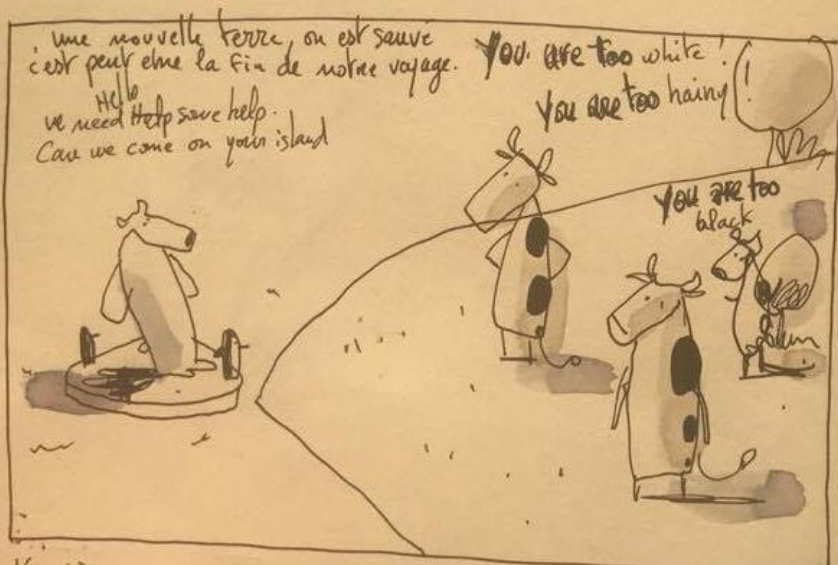 une nouvelle terre, on est sauvé
c'est peut etre la fin de notre voyage.
Hello
we need Help save help.
Can we come on your island
You are too white !
You are too hairy !
You are too
black